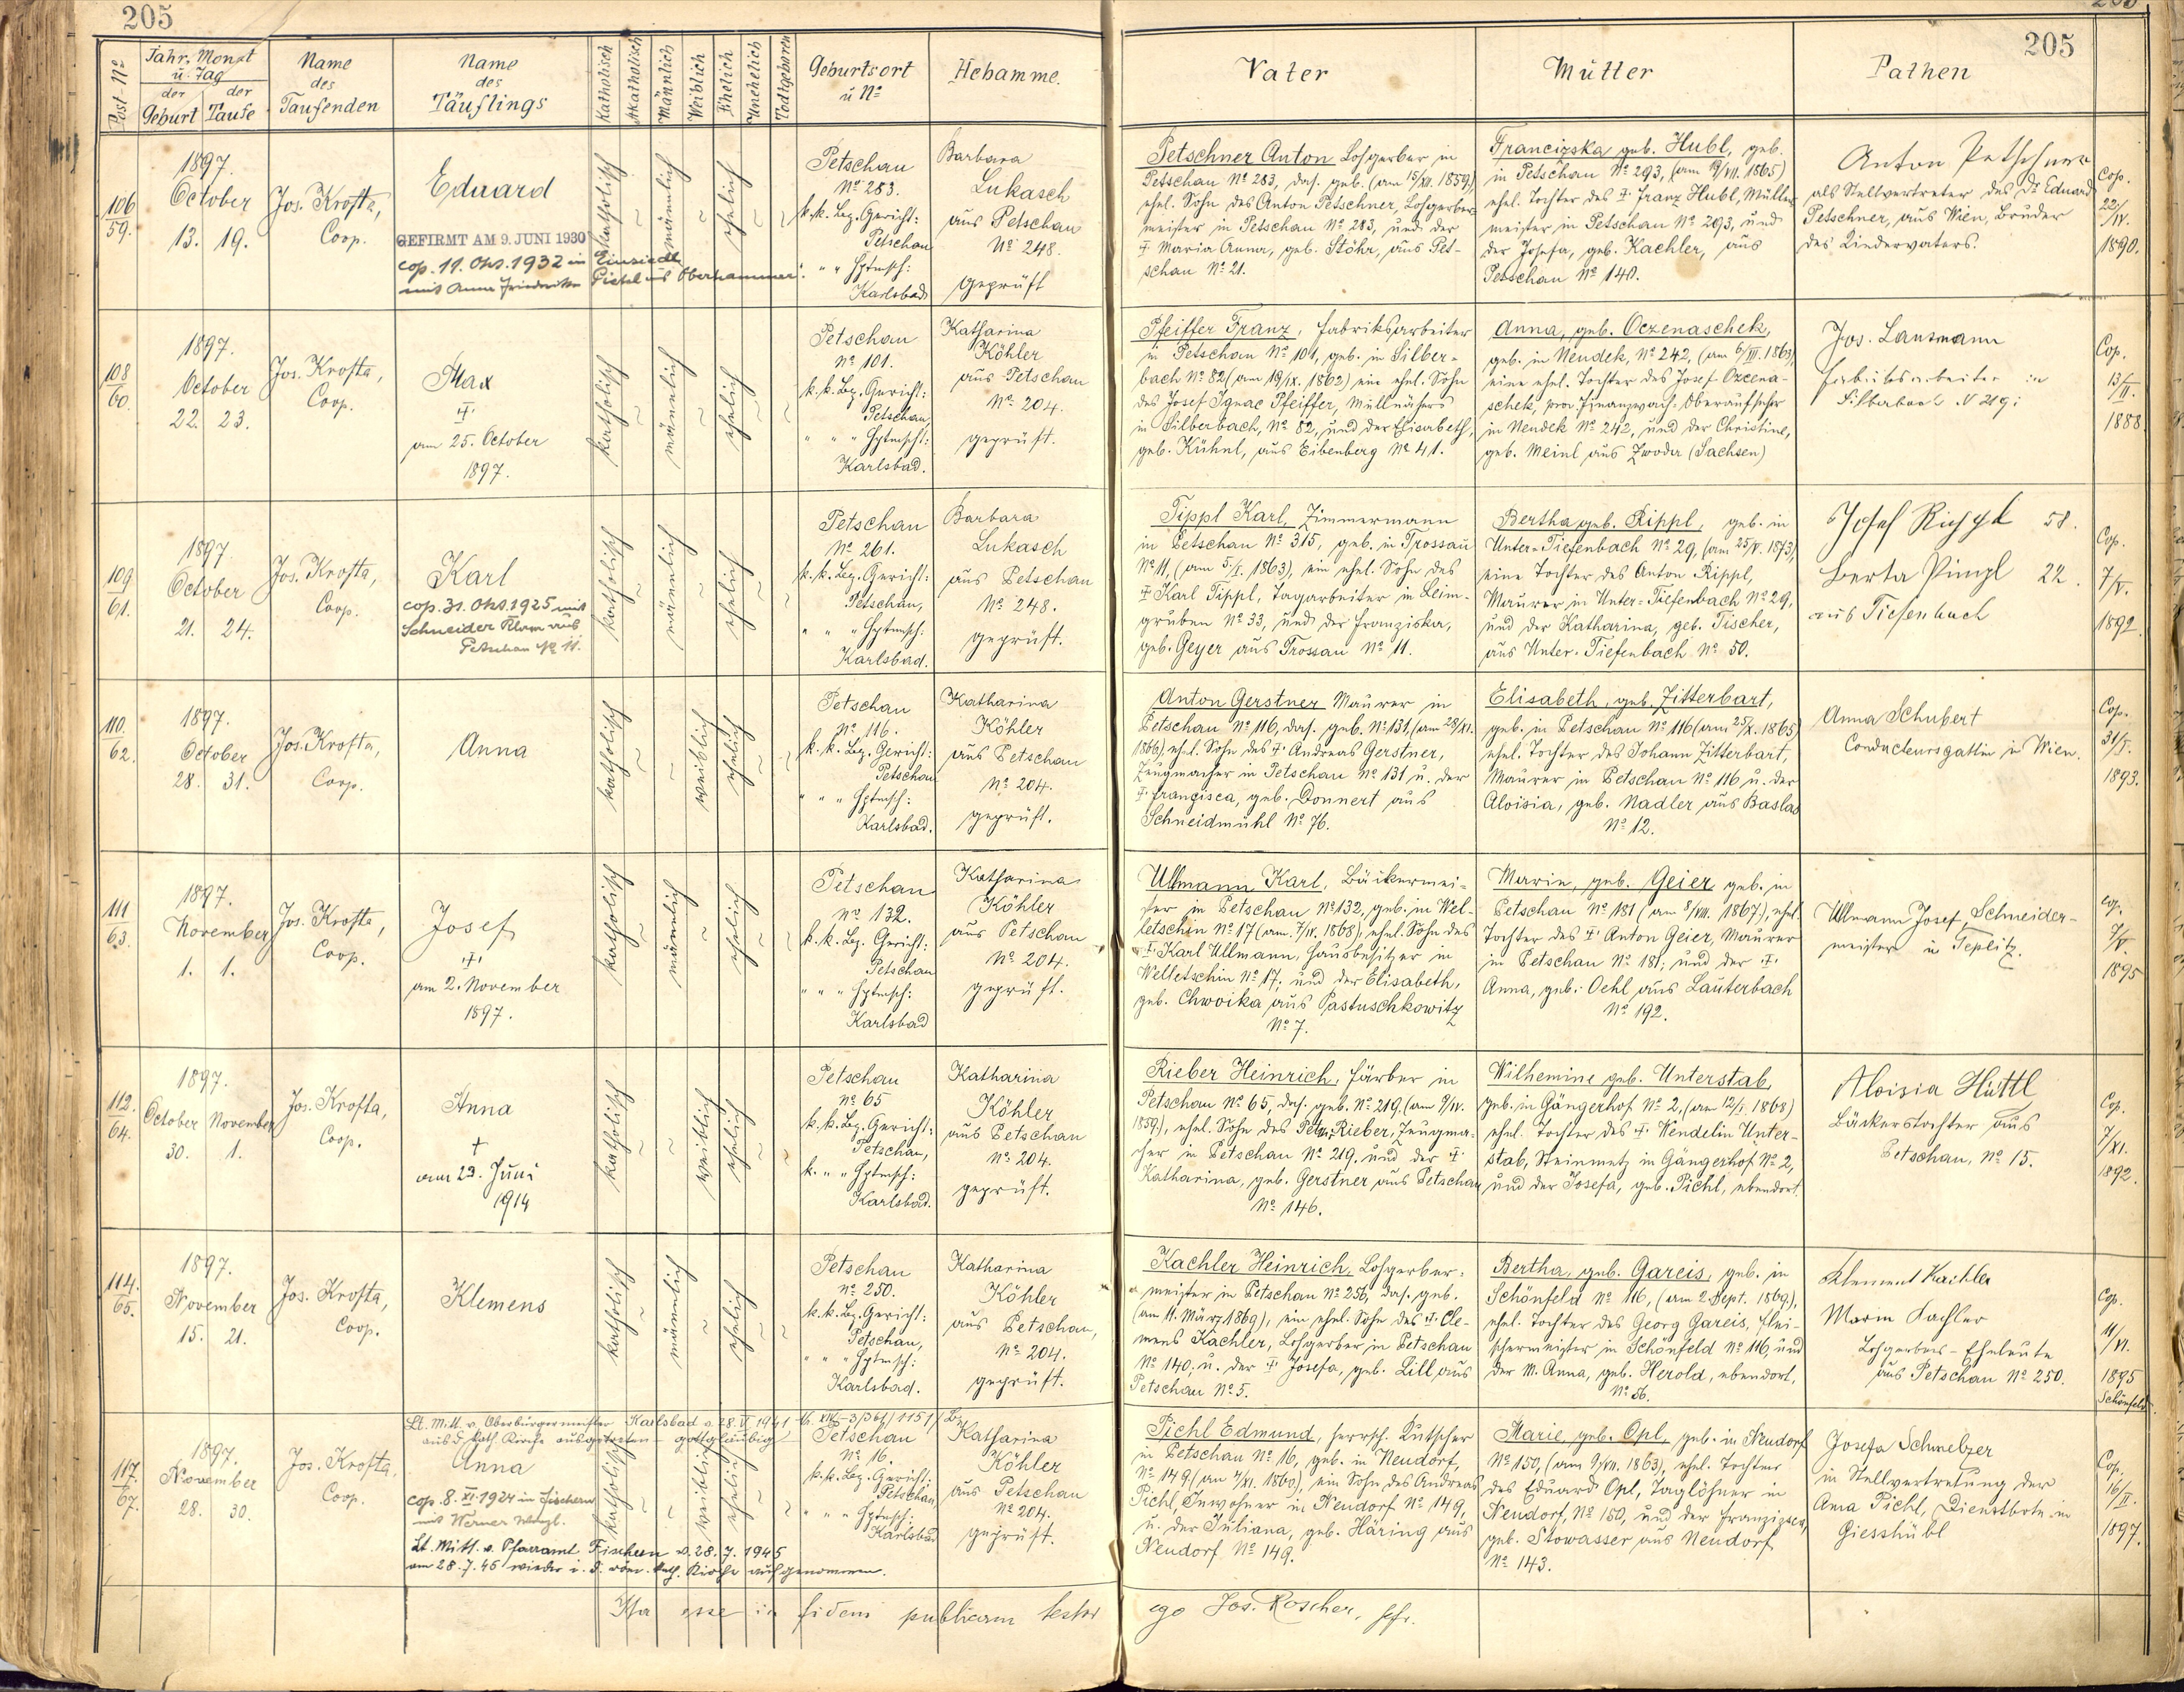 205
205
Post-Nº
Jahr, Monat
u. Tag
der der
Geburt Taufe
Name
des
Taufenden
Name
des
Täuflings
Katholisch
Akatholisch
Männlich
Weiblich
Ehelich
Unehelich
Todtgeboren
Geburtsort
u Nº
Hebamme.
Vater
Mutter
Pathen
106
59.
1897.
October
13. 19.
Jos. Krofta,
Coop.
Eduard
GEFIRMT AM 9. JUNI 1930
cop. 11. Okt. 1932 in Einsiedl
mit Anna Friederike Pichl aus Oberhammer.
katholisch
männlich
ehelich
Petschau
Nº 283.
k.k. Bez. Gericht:
Petschau
" " Hptmsch:
Karlsbad
Barbara
Lukasch
aus Petschau
Nº 248.
geprüft
Petschner Anton Lohgerber in
Petschau Nº 283, das. geb. (am 15/XII. 1859)
ehel. Sohn des Anton Petschner, Lohgerber-
meister in Petschau Nº 283, und der
Maria Anna, geb. Stöhr, aus Pet-
schau Nº 21.
Franciska geb. Hubl, geb.
in Petschau Nº 293, (am 19/VII. 1865)
ehel. Tochter des Franz Hubl, Müller
meister in Petschau Nº 293, und
der Josefa, geb. Kachler, aus
Petschau Nº 140.
Anton Petschner
als Stellvertreter des Dr Eduard
Petschner, aus Wien, Bruder
des Kindervaters.
Cop.
22/IV.
1890.
108
60.
1897.
October
22. 23.
Jos. Krofta,
Coop.
Max
am 25. October
1897.
katholisch
männlich
ehelich
Petschau
Nº 101.
k.k. Bez. Gericht:
Petschau,
" " " Hptmscht:
Karlsbad.
Katharina
Köhler
aus Petschau
Nº 204.
geprüft.
Pfeiffer Franz, Fabriksarbeiter
in Petschau Nº 101, geb. in Silber-
bach Nº 82 (am 19/IX. 1862) ein ehel. Sohn
des Josef Ignac Pfeiffer, Müllnähers
in Silberbach, Nº 82, und der Elisabeth,
geb. Kühnl, aus Eibenberg Nº 41.
Anna, geb. Oczenaschek,
geb. in Neudek, Nº 242, (am 6/III. 1863)
eine ehel. Tochter des Josef Ozcena-
schek, prov. Finanzwach-Oberaufseher
in Neudek Nº 242, und der Christine,
geb. Meinl aus Zwoda (Sachsen)
Jos. Lausmann
Fabriksarbeiter in
Silberbach N 219;
Cop.
13/II.
1888
109
61.
1897
October
21. 24.
Jos. Krofta,
Coop.
Karl
cop. 31. Okt. 1925 mit
Schneider aus
Petschau Nº 11.
katholisch
männlich
ehelich
Petschau
Nº 261.
k.k. Bez. Gericht:
Petschau,
" " " Hptmsch:
Karlsbad.
Barbara
Lukasch
aus Petschau
Nº 248.
geprüft.
Tippl Karl, Zimmermann
in Petschau Nº 315, geb. in Trossau
Nº 11, (am 5/I. 1863), ein ehel. Sohn des
Karl Tippl, Tagarbeiter in Leim-
gruben Nº 33, und der Franziska,
geb. Geyer aus Trossau Nº 11.
Bertha geb. Rippl, geb. in
Unter-Tiefenbach Nº 29, (am 25/V. 1873)
eine Tochter des Anton Rippl,
Maurer in Unter-Tiefenbach Nº 29,
und der Katharina, geb. Tischer,
aus Unter-Tiefenbach Nº 50.
Josef 58.
Berta 22.
aus Tiefenbach
Cop.
7/V.
1892.
110.
62.
1897.
October
28. 31.
Jos. Krofta,
Coop.
Anna
katholisch
weiblich
ehelich
Petschau
Nº 116.
k.k. Bez. Gericht:
Petschau
" " " Hptmsch:
Karlsbad.
Katharina
Köhler
aus Petschau
Nº 204.
geprüft.
Anton Gerstner Maurer in
Petschau Nº 116, das. geb. Nº 131, (am 28/XI.
1866) ehel. Sohn des Andreas Gerstner,
Zeugmacher in Petschau Nº 131 u. der
Francisca, geb. Donnert aus
Schneidmühl Nº 76.
Elisabeth, geb. Zitterbart,
geb. in Petschau Nº 116 (am 25/X. 1865)
ehel. Tochter des Johann Zitterbart,
Maurer in Petschau Nº 116 u. der
Aloisia, geb. Nadler aus Baslas
Nº 12.
Anna Schubert
Conducteursgattin in Wien.
Cop.
31/I.
1893.
111
63.
1897.
November
1. 1.
Jos. Krofta,
Coop.
Josef
am 2. November
1897.
katholisch
männlich
ehelich
Petschau
Nº 132.
k.k. Bez. Gericht:
Petschau
" " " Hptmsch:
Karlsbad
Katharina
Köhler
aus Petschau
Nº 204.
geprüft.
Ullmann Karl, Bäckermei-
ster in Petschau Nº 132, geb. in Wel-
letschin Nº 17 (am 7/IV. 1868), ehel. Sohn des
Karl Ullmann, Hausbesitzer in
Welletschin Nº 17; und der Elisabeth,
geb. Chwoika aus Pastuschkowitz
Nº 7.
Marie, geb. Geier, geb. in
Petschau Nº 181 (am 8/VIII. 1867.), ehel.
Tochter des Anton Geier, Maurer
in Petschau Nº 181; und der
Anna, geb. Oehl aus Lauterbach
Nº 192.
Ullmann Josef, Schneider-
meister in Teplitz.
Cop.
7/V.
1895
112.
64.
1897.
October November
30. 1.
Jos. Krofta,
Coop.
Anna
†
am 23. Juni
1914
katholisch
weiblich
ehelich
Petschau
Nº 65
k.k. Bez. Gericht:
Petschau,
k. " " Hptmsch:
Karlsbad.
Katharina
Köhler
aus Petschau
Nº 204.
geprüft.
Rieber Heinrich, Färber in
Petschau Nº 65, das. geb. Nº 219. (am 9/IV.
1859), ehel. Sohn des Peter Rieber, Zeugma-
cher in Petschau Nº 219. und der
Katharina, geb. Gerstner aus Petschau
Nº 146.
Wilhemine geb. Unterstab,
geb. in Gängerhof Nº 2, (am 12/I. 1868)
ehel. Tochter des Wendelin Unter-
stab, Steinmetz in Gängerhof Nº 2,
und der Josefa, geb. Pichl, ebendort.
Aloisia Hüttl
Bäckerstochter aus
Petschau, Nº 15.
Cop.
7/XI.
1892.
114.
65.
1897.
November
15. 21.
Jos. Krofta,
Coop.
Klemens
katholisch
männlich
ehelich
Petschau
Nº 250.
k.k. Bez. Gericht:
Petschau,
" " " Hptmsch:
Karlsbad.
Katharina
Köhler
aus Petschau,
Nº 204.
geprüft.
Kachler Heinrich, Lohgerber-
meister in Petschau Nº 256, das. geb.
(am 11. März 1869), ein ehel. Sohn des Cle-
mens Kachler, Lohgerber in Petschau
Nº 140, u. der Josefa, geb. Lill aus
Petschau Nº 5.
Bertha, geb. Gareis, geb. in
Schönfeld Nº 116, (am 2. Sept. 1869.),
ehel. Tochter des Georg Gareis, Flei-
schermeister in Schönfeld Nº 116, und
der M. Anna, geb. Herold, ebendort,
Nº 56.
Klement Kachler
Marin Kachler
Lohgerbers-Eheleute
aus Petschau Nº 250.
Cop.
11/VI.
1895
Schönfeld.
Lt. Mitt. v. Oberbürgermeister Karlsbad v. 28. V. 1941
aus d. kath. Kirche ausgetreten - gottgläubig
117.
67.
1897.
November
28. 30.
Jos. Krofta,
Coop.
Anna
cop. 8. XI. 1924 in Fischern
mit Werner
Lt. Mitt. v. Pfarramt Fischern v. 28. 7. 1945
am 28. 7. 45 wieder i. d. röm. kath. Kirche aufgenommen.
katholisch
weiblich
ehelich
Petschau
Nº 16.
k.k. Bez. Gericht:
Petschau,
" " " Hptmsch:
Karlsbad
Katharina
Köhler
aus Petschau
Nº 204.
geprüft.
Pichl Edmund, herrsch. Kutscher
in Petschau Nº 16, geb. in Neudorf,
Nº 149 (am 4/XI. 1860), ein Sohn des Andreas
Pichl, Inwohner in Neudorf Nº 149,
u. der Juliana, geb. Häring aus
Neudorf Nº 149.
Marie, geb. Opl, geb. in Neudorf
Nº 150, (am 9/VII. 1863), ehel. Tochter
des Eduard Opl, Taglöhner in
Neudorf, Nº 150, und der Franzisca,
geb. Stowasser aus Neudorf
Nº 143.
Josefa Schmelzer
in Stellvertretung der
Anna Pichl, Dienstbote in
Giesshübl
Cop.
16/II.
1897.
Ita esse in fidem publicam testor
ego Jos. Roscher,